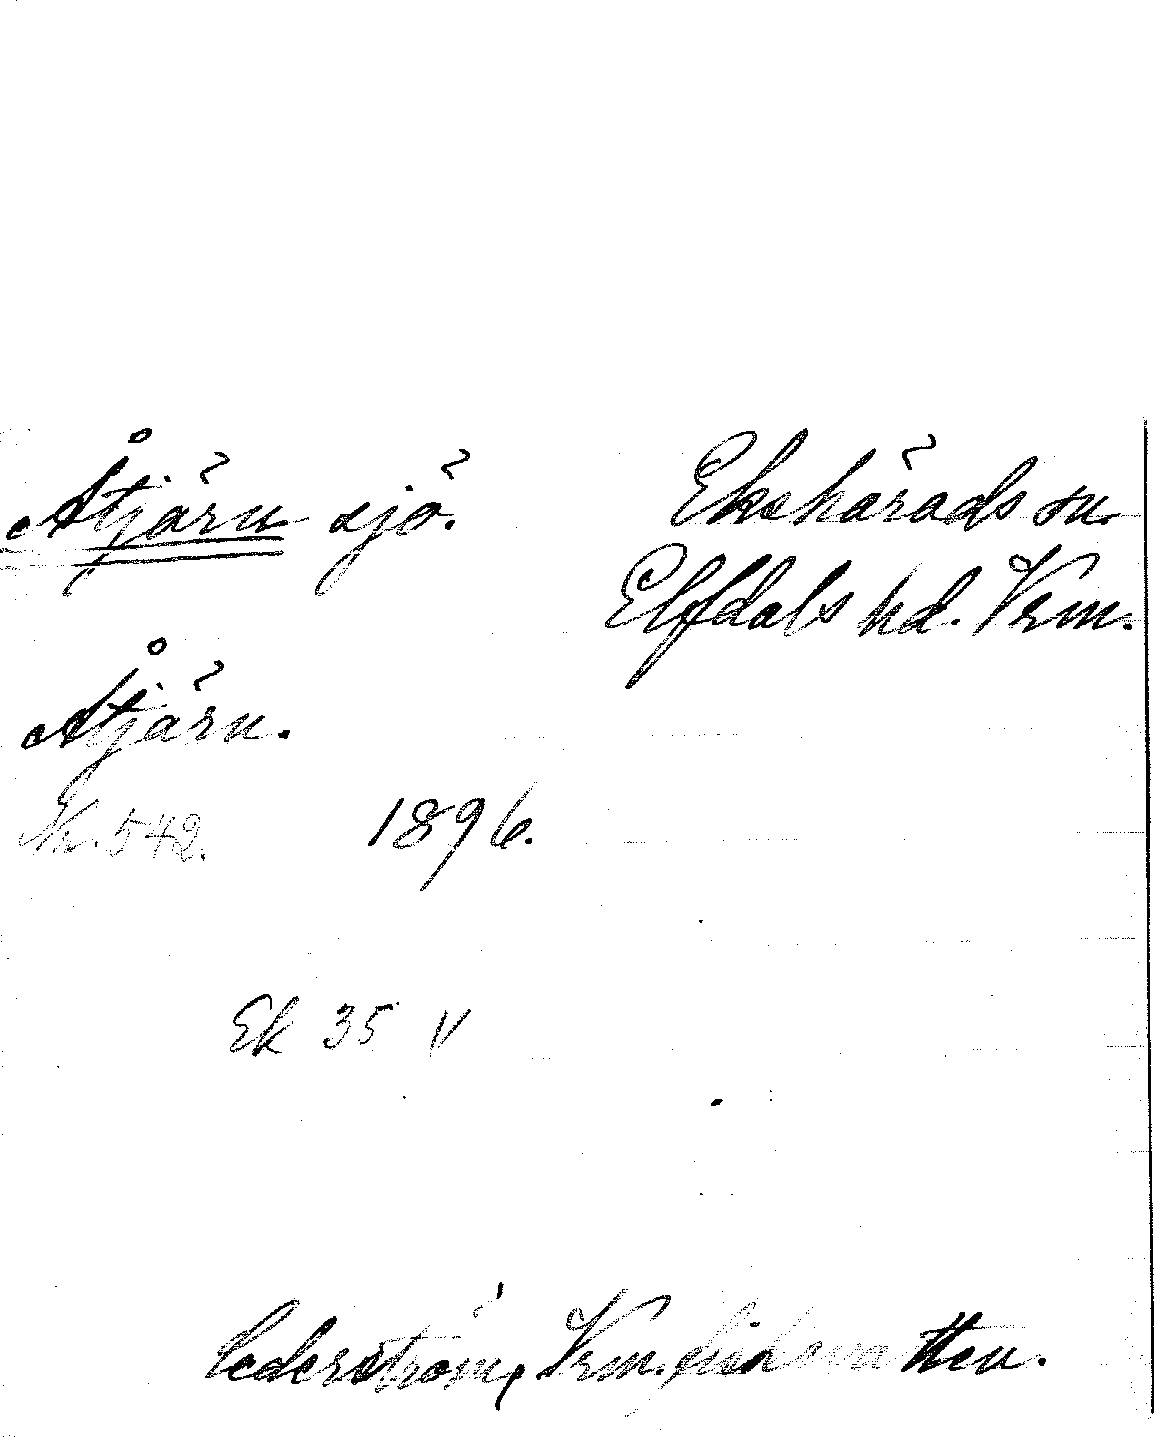 Åtjärn sjö.
Ekshärads sn.
Elfdals hd. Vrm.
Åtjärn.
Nr. 542.
1896.
Ek 35 V
Cederström, Vrm. fiskevatten.